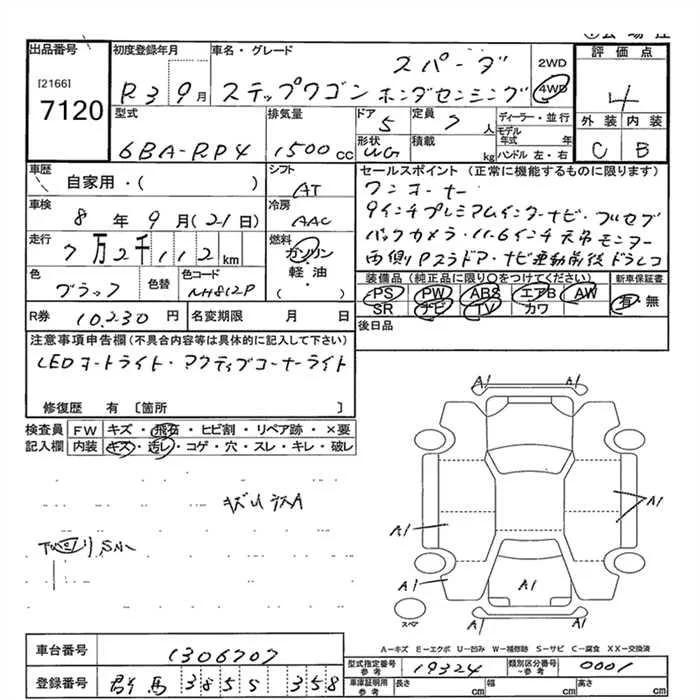 出品番号 [2166] 7120
初度登録年月 R3 9月
車名・グレード ステップワゴン スパーダ ホンダセンシング
2WD 4WD
評価点 4
外装 内装
C B
型式 6BA-RP4
排気量 1500cc
ドア 5
定員 7人
形状 WG
積載 kg
ディーラー・並行
モデル年式 年
ハンドル 左・右
車歴 自家用・( )
シフト AT
車検 8年9月(21日)
冷房 AAC
走行 7万2千112km
燃料 ガソリン・軽油・( )
色 ブラック
色替
色コード NH812P
R券 10,230円
名変期限 月 日
セールスポイント (正常に機能するものに限ります)
ワンオーナー
9インチプレミアムインターナビ・フルセグ
バックカメラ・11.6インチ天吊モニター
両側Pスラドア・ナビ連動前後ドラレコ
装備品(純正品に限り○をつけてください)
新車保証書
PS PW ABS エアB AW
有・無
SR ナビ TV カワ
後日品
注意事項申告欄(不具合内容等は具体的に記入して下さい)
LEDヘッドライト・アクティブコーナーライト
修復歴 有 [箇所 ]
検査員 FW キズ・飛石・ヒビ割・リペア跡・×要
記入欄 内装 キズ・汚レ・コゲ・穴・スレ・キレ・破レ
A1 A1
A1 A1
A1 A1
スペア
A-キズ E-エクボ U-凹み W-補修跡 S-サビ C-腐食 XX-交換済
車台番号 1306707
登録番号 群馬 385 358
型式指定番号 参考 19324
類別区分番号 参考 0001
車庫証明用 参考 長さ cm 幅 cm 高さ cm